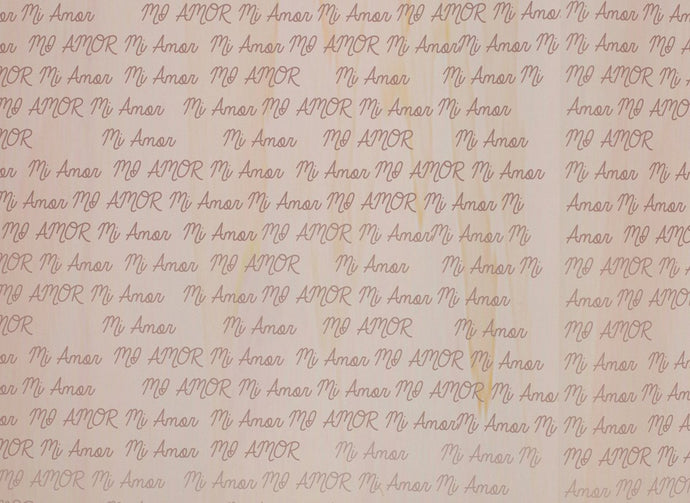 or Mi Amor MI AMOR Mi Amor Mi Amor MI AMOR Mi Amo Mi Amor Mi Amor
or MI AMOR Mi Amor Mi Amor MI AMOR Mi Amor Mi Amor Mi Mi Amor MI A
MOR Mi Amor Mi Amor MI AMOR Mi Amor Mi Amor Mi MI AMOR Mi
MI AMOR Mi Amor Mi Amor MI AMOR Mi Amor Mi Amor Amor MI AMO
MOR Mi Amor Mi Amor MI AMOR Mi Amor MI AMOR
or Mi Amor MI AMOR Mi Amor Mi Amor MI AMOR Mi Amor Mi Amor Mi A
r Mi Amor MI AMOR Mi Amor Mi Amor MI AMOR Mi Amor Mi Amor Mi Amor Mi
Mi Amor MI AMOR Mi Amor Mi Amor MI AMOR Mi Amor Mi Mi Amor Mi Amor
MI AMOR Mi Amor Mi Amor MI AMOR Mi Amor Mi Amor Mi Amor MI AMO
MOR Mi Amor Mi Amor MI AMOR Mi Amor Mi Amor Mi MI AMOR Mi
MI AMOR Mi Amor Mi Amor MI AMOR Mi Amor Mi Amor Amor MI AMO
MOR Mi Amor Mi Amor MI AMOR Mi Amor MI AMOR
or Mi Amor MI AMOR Mi Amor Mi Amor MI AMOR Mi Amor Mi Amor Mi A
or Mi Amor MI AMOR Mi Amor Mi Amor MI AMOR Mi Amo Mi Amor Mi Amor
or MI AMOR Mi Amor Mi Amor MI AMOR Mi Amor Mi Amor Mi Mi Amor MI A
MOR Mi Amor Mi Amor MI AMOR Mi Amor Mi Amor Mi MI AMOR Mi
MI AMOR Mi Amor Mi Amor MI AMOR Mi Amor Mi Amor Amor MI AMO